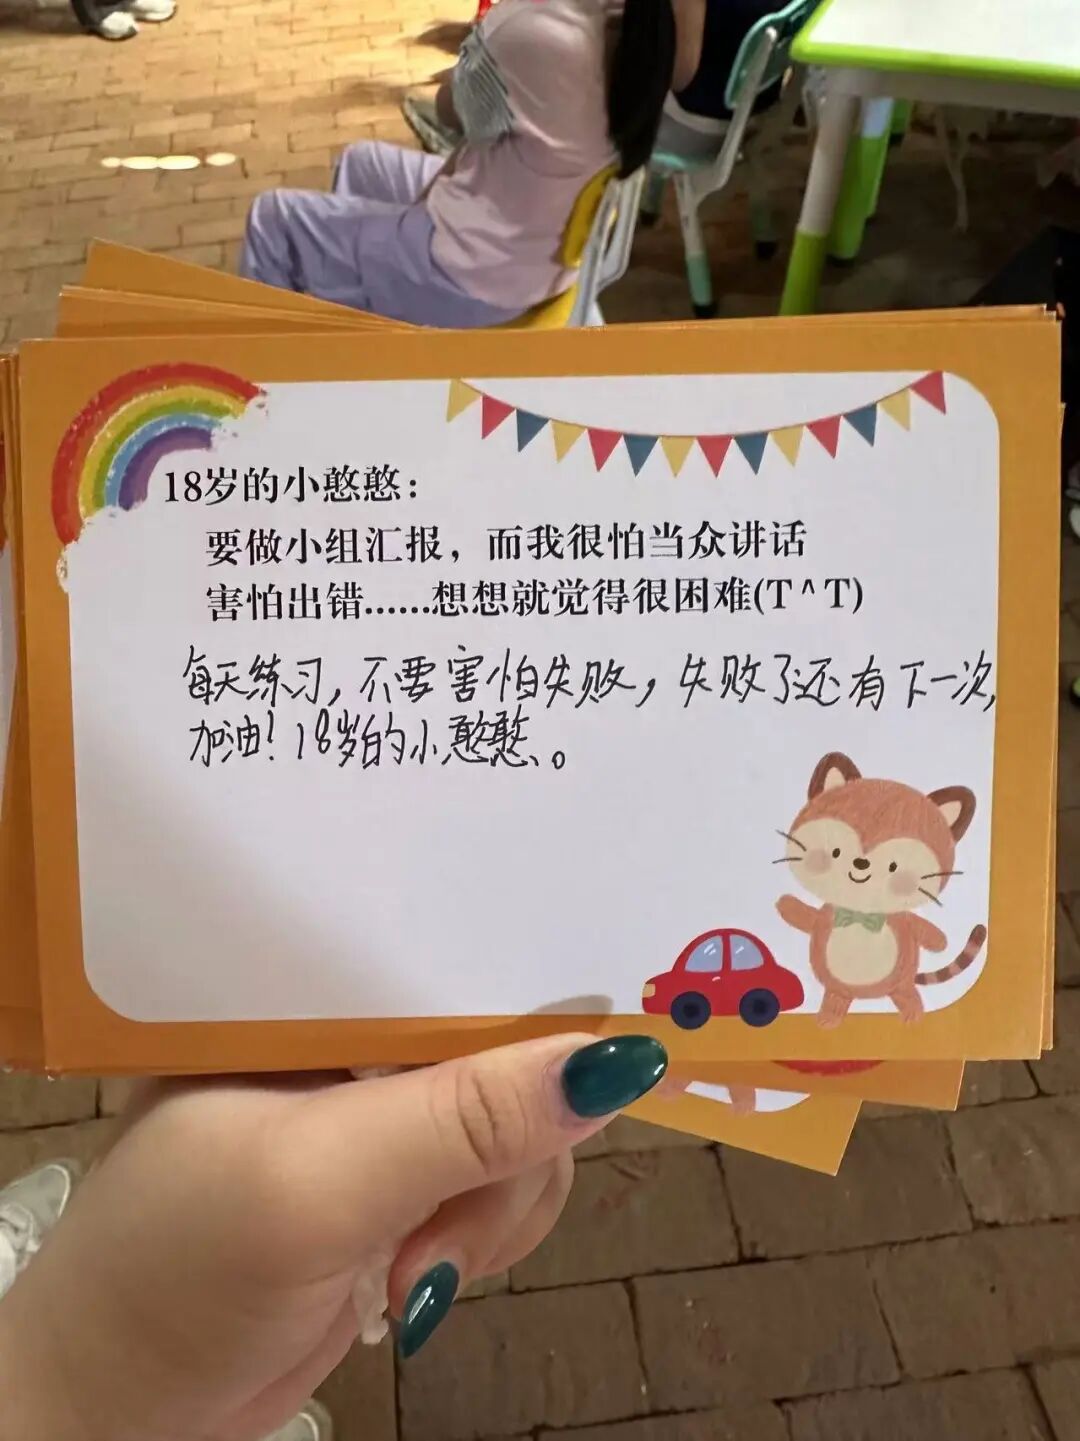 18岁的小憨憨：
要做小组汇报，而我很怕当众讲话
害怕出错......想想就觉得很困难(T^T)
每天练习，不要害怕失败，失败了还有下一次，
加油！18岁的小憨憨。